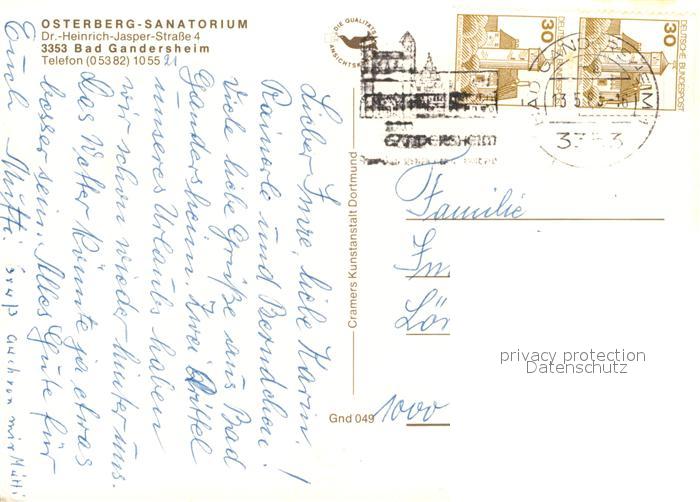 OSTERBERG-SANATORIUM
Dr.-Heinrich-Jasper-Straße 4
3353 Bad Gandersheim
Telefon (05382) 1055 21
Lieber Imre, liebe Karin!
Rainerle und Berndchen!
Viele liebe Grüße aus Bad
Gandersheim. Zwei Drittel
unseres Urlaubs haben
wir schon wieder hinter uns.
Das Wetter könnte ja etwas
besser sein. Alles Gute für
Euch Mutti.
Gruß auch von
Cramers Kunstanstalt Dortmund
Gnd 049
DIE QUALITÄTS
ANSICHTSK
30
DEUTSCHE BUNDESPOST
30
DEUTSCHE BUNDESPOST
BAD GANDERSHEIM
3353
GANDERSHEIM
Familie
In
Lör
1000
privacy protection
Datenschutz